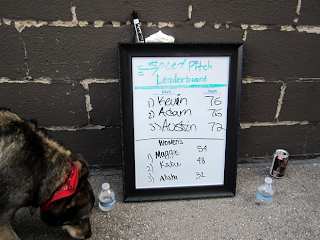 Speed Pitch
Leaderboard
1) Kevin 76
2) Adam 76
3) Austin 72
WOMENS
1) Maggie 54
2) Katie 48
3) Alisha 32